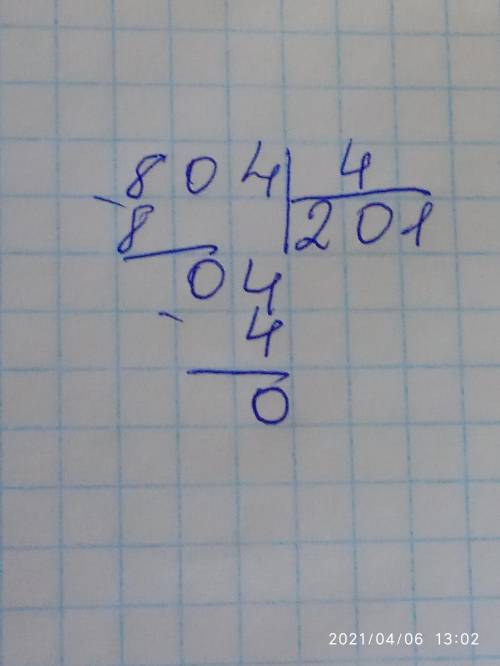 804 4
8 201
04
4
0
2021/04/06 13:02